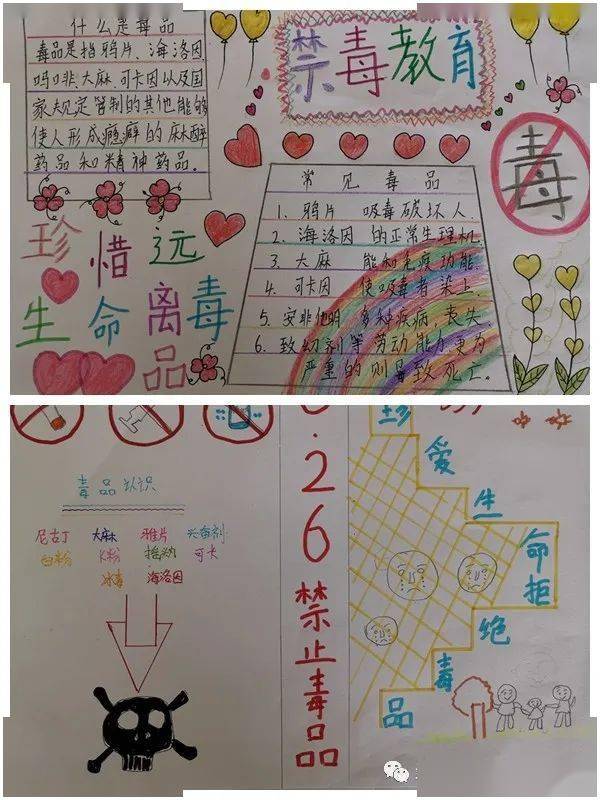 什么是毒品
毒品是指鸦片、海洛因、
吗啡、大麻、可卡因以及国
家规定管制的其他能够
使人形成瘾癖的麻醉
药品和精神药品.
禁毒教育
毒
珍惜远
生命离毒
品
常见毒品
1、鸦片 吸毒破坏人
2、海洛因 的正常生理机
3、大麻 能和免疫功能.
4、可卡因 使吸毒者染上
5、安非他明 多种疾病,丧失
6、致幻剂等 劳动能力,更为
严重的则导致死亡.
毒品认识
尼古丁 大麻 鸦片 兴奋剂
白粉 K粉 摇头丸 可卡
冰毒 海洛因
6·26禁止毒品
珍爱生命拒绝毒品